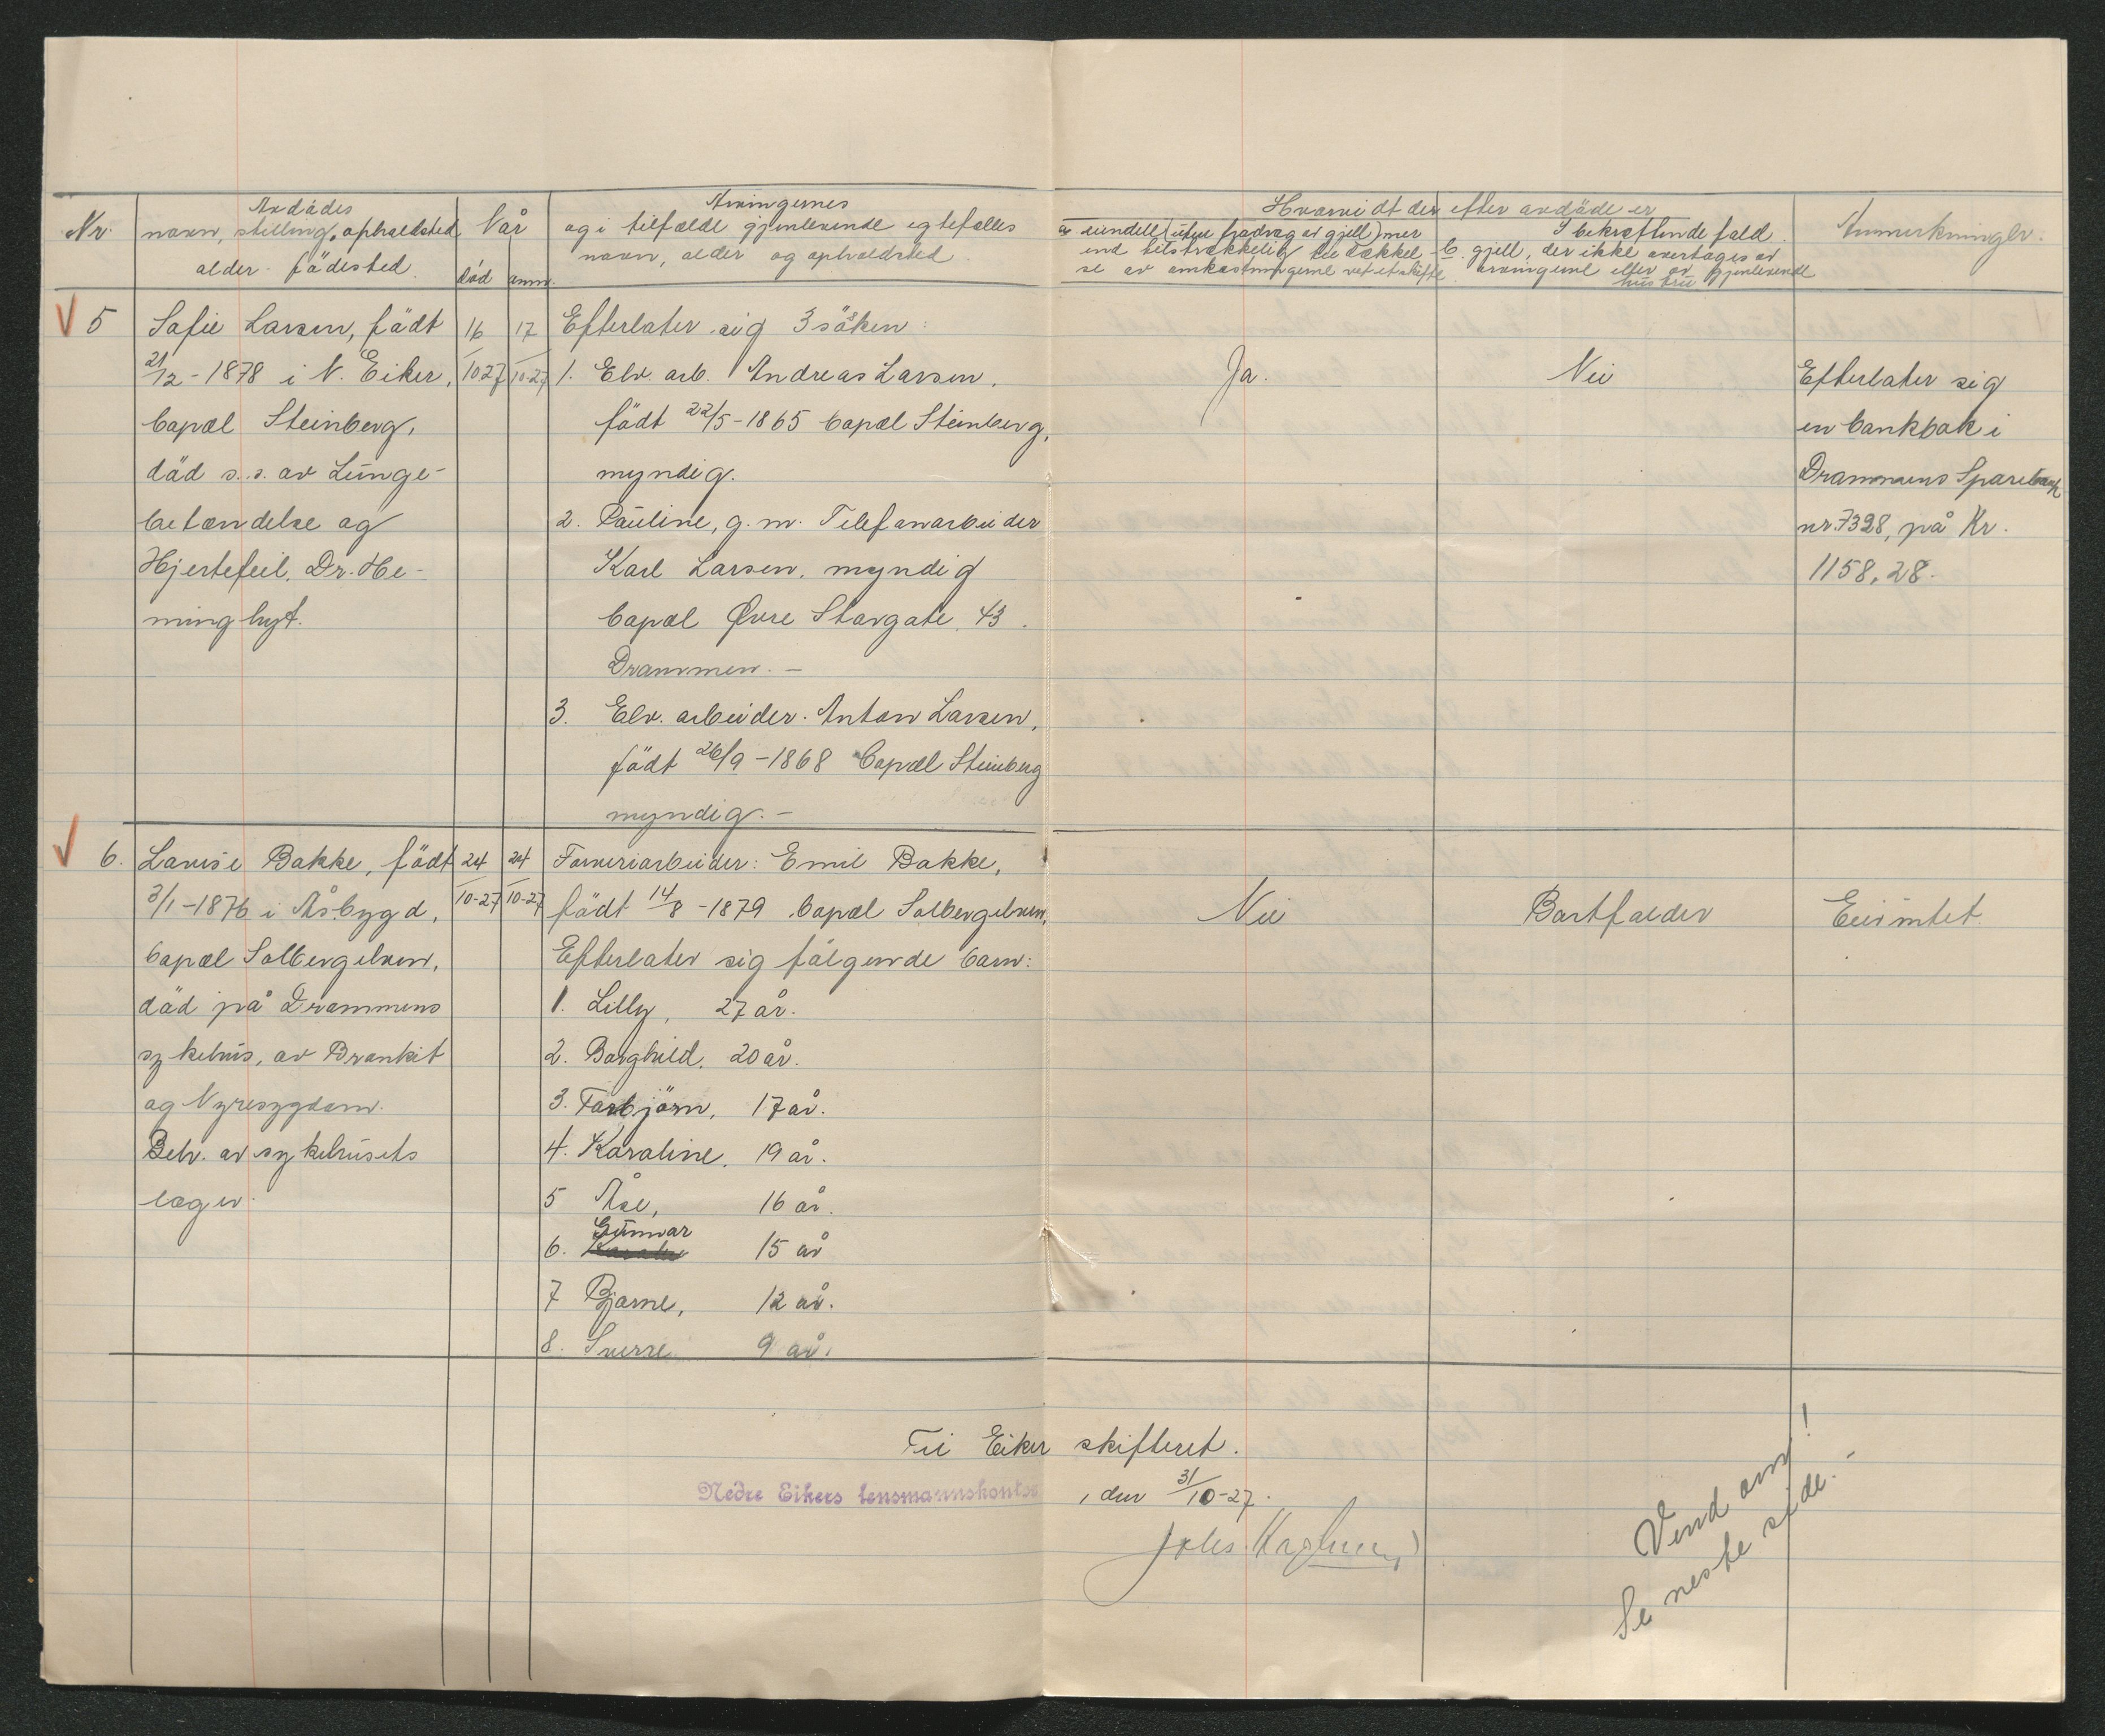 Nr.
Avdødes
navn, stilling, opholdsted
alder - fødested.
Når
død anm.
Arvingernes
og i tilfælde gjenlevende egtefelles
navn, alder og opholdsted
Hvorvidt der efter avdøde er
a eiendele (uten fradrag av gjeld) mer
end tilstrækkelig til dækkel-
se av omkostningerne ved et skifte
I bekræftende fald
b. gjeld, der ikke overtages av
arvingerne eller av gjenlevende
hustru
Anmerkninger.
5
Sofie Larsen, født
21/12 - 1878 i N. Eiker,
bopæl Steinberg,
død s.s. av Lunge-
betændelse og
Hjertefeil, Dr. He-
minghyt.
16/10 27
17/10-27
Efterlater sig 3 søsken:
1. Elv. arb. Andreas Larsen,
født 22/5 - 1865 bopæl Steinberg,
myndig.
2. Pauline, g. m. Telefonarbeider
Karl Larsen, myndig
bopæl Øvre Storgate 43.
Drammen. -
3. Elv. arbeider. Anton Larsen,
født 26/9 - 1868 bopæl Steinberg
myndig. -
Ja.
Nei
Efterlater sig
en bankbok i
Drammens Sparebank
nr. 7328, på Kr.
1158,28.
6.
Lovise Bakke, født
3/1 - 1876 i Åsbygd,
bopæl Solbergelven,
død på Drammens
sykehus, av Bronkit
og Nyresygdom.
Beh. av sykehusets
læger.
24/10-27
24/10-27
Farveriarbeider: Emil Bakke,
født 14/8 - 1879 bopæl Solbergelven,
Efterlater sig følgende barn:
1. Lilly, 27 år.
2. Borghild, 20 år.
3. Torbjørn, 17 år.
4. Karoline, 19 år.
5 Åse, 16 år.
Gunvar
6. 15 år
7 Bjarne, 12 år.
8. Sverre 9 år.
Nei
Bortfalder
Eier intet.
Til Eiker skifteret.
Nedre Eikers lensmannskontor, den 31/10-27.
Vend om!
Se neste side. -